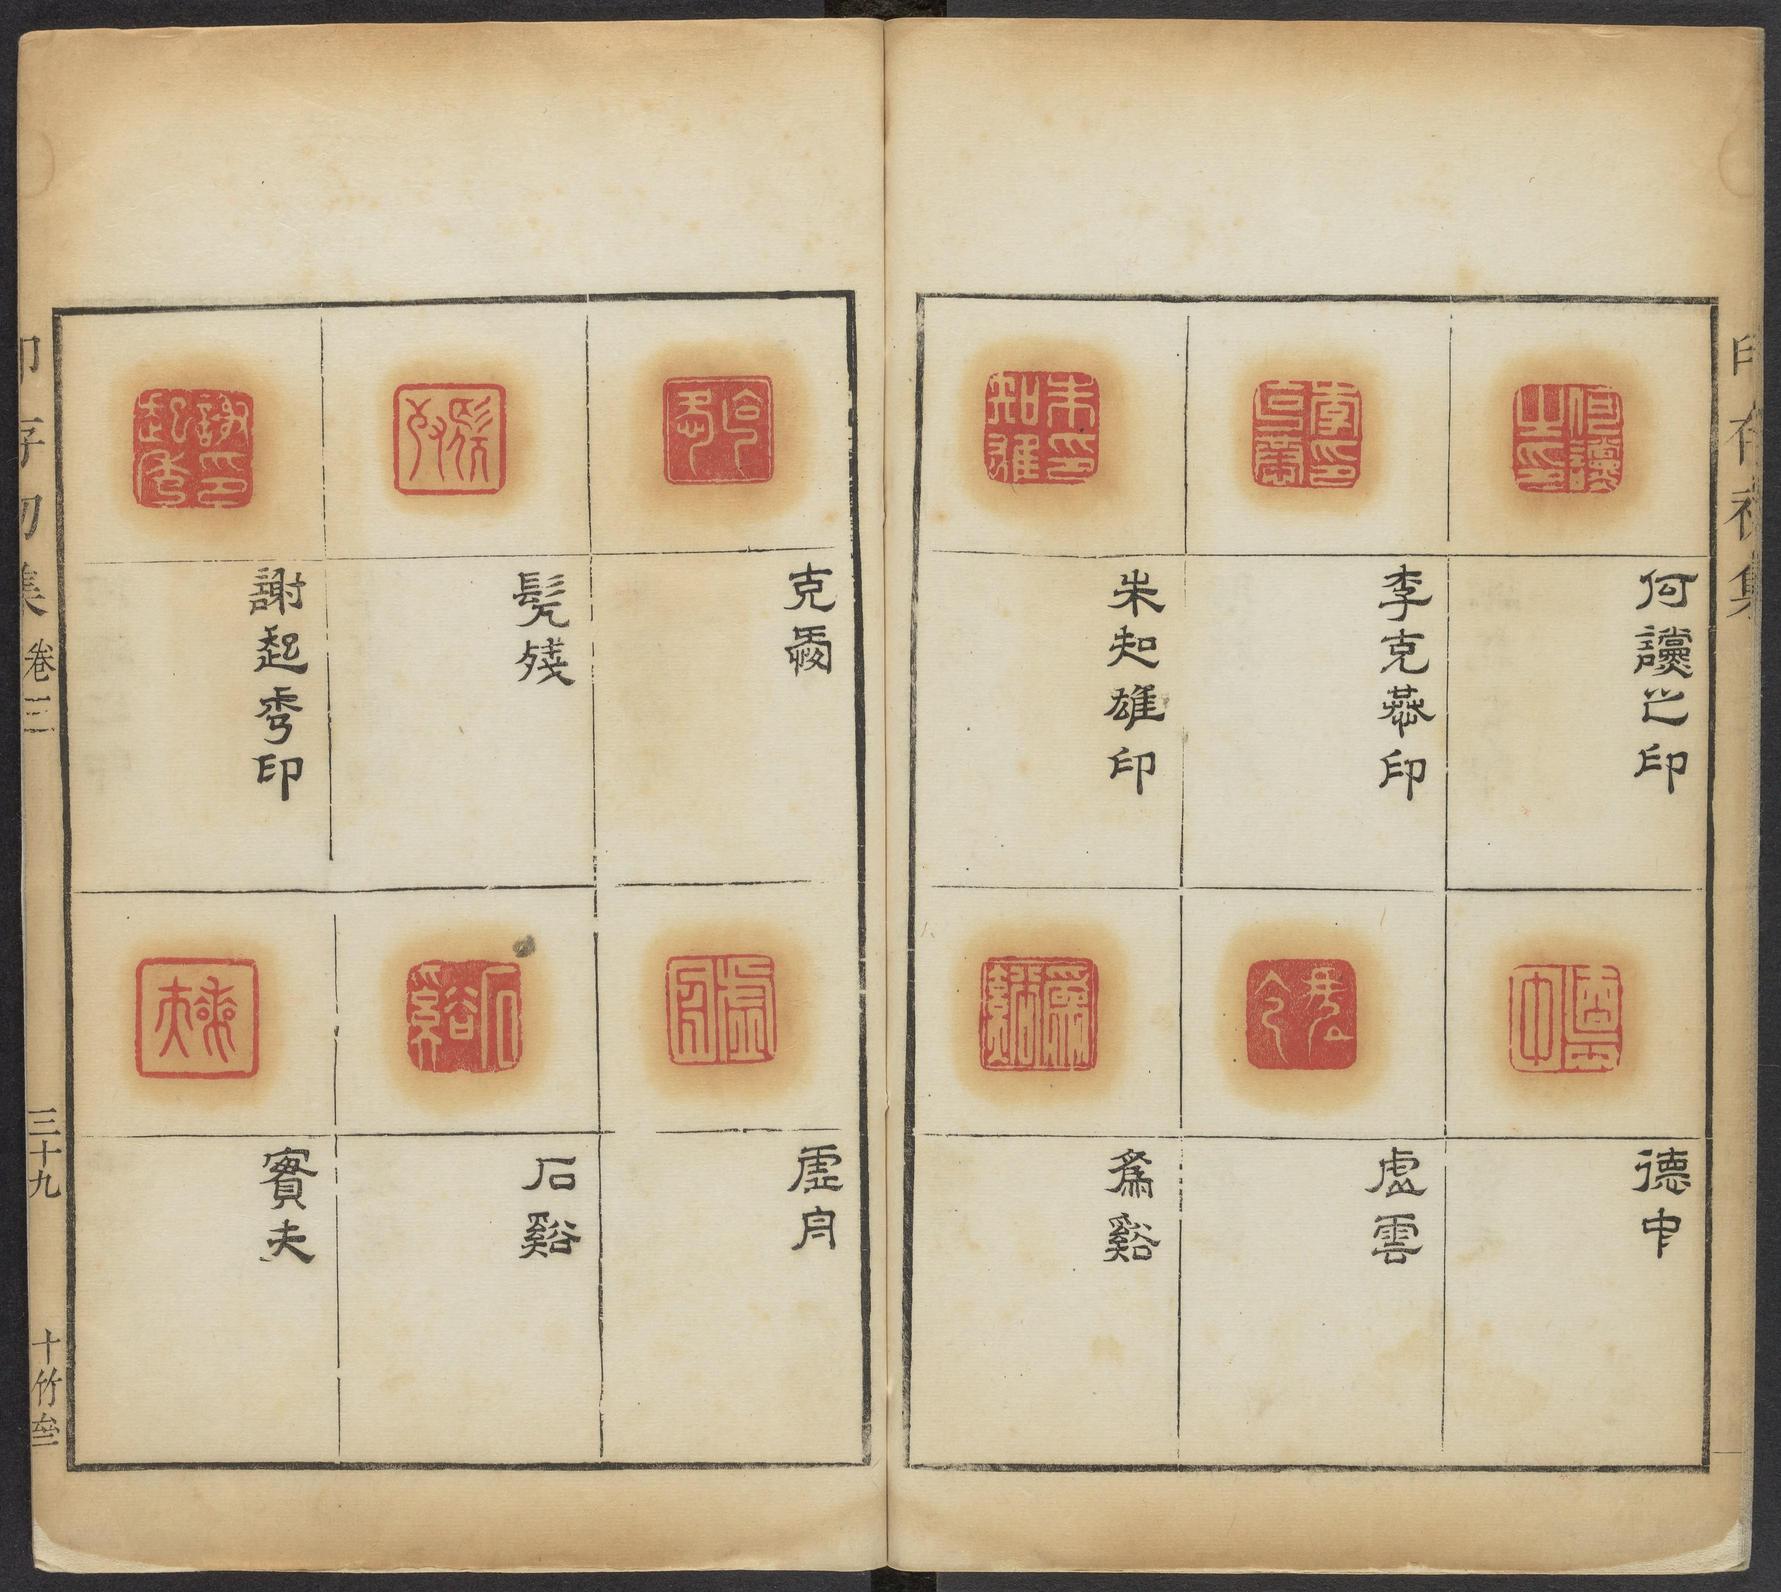 印存初集
何讀之印
李克恭印
朱知雄印
德中
虛雲
為谿
克
髡殘
謝起秀印
虛舟
石谿
賓夫
印存初集
卷三
三十九
十竹